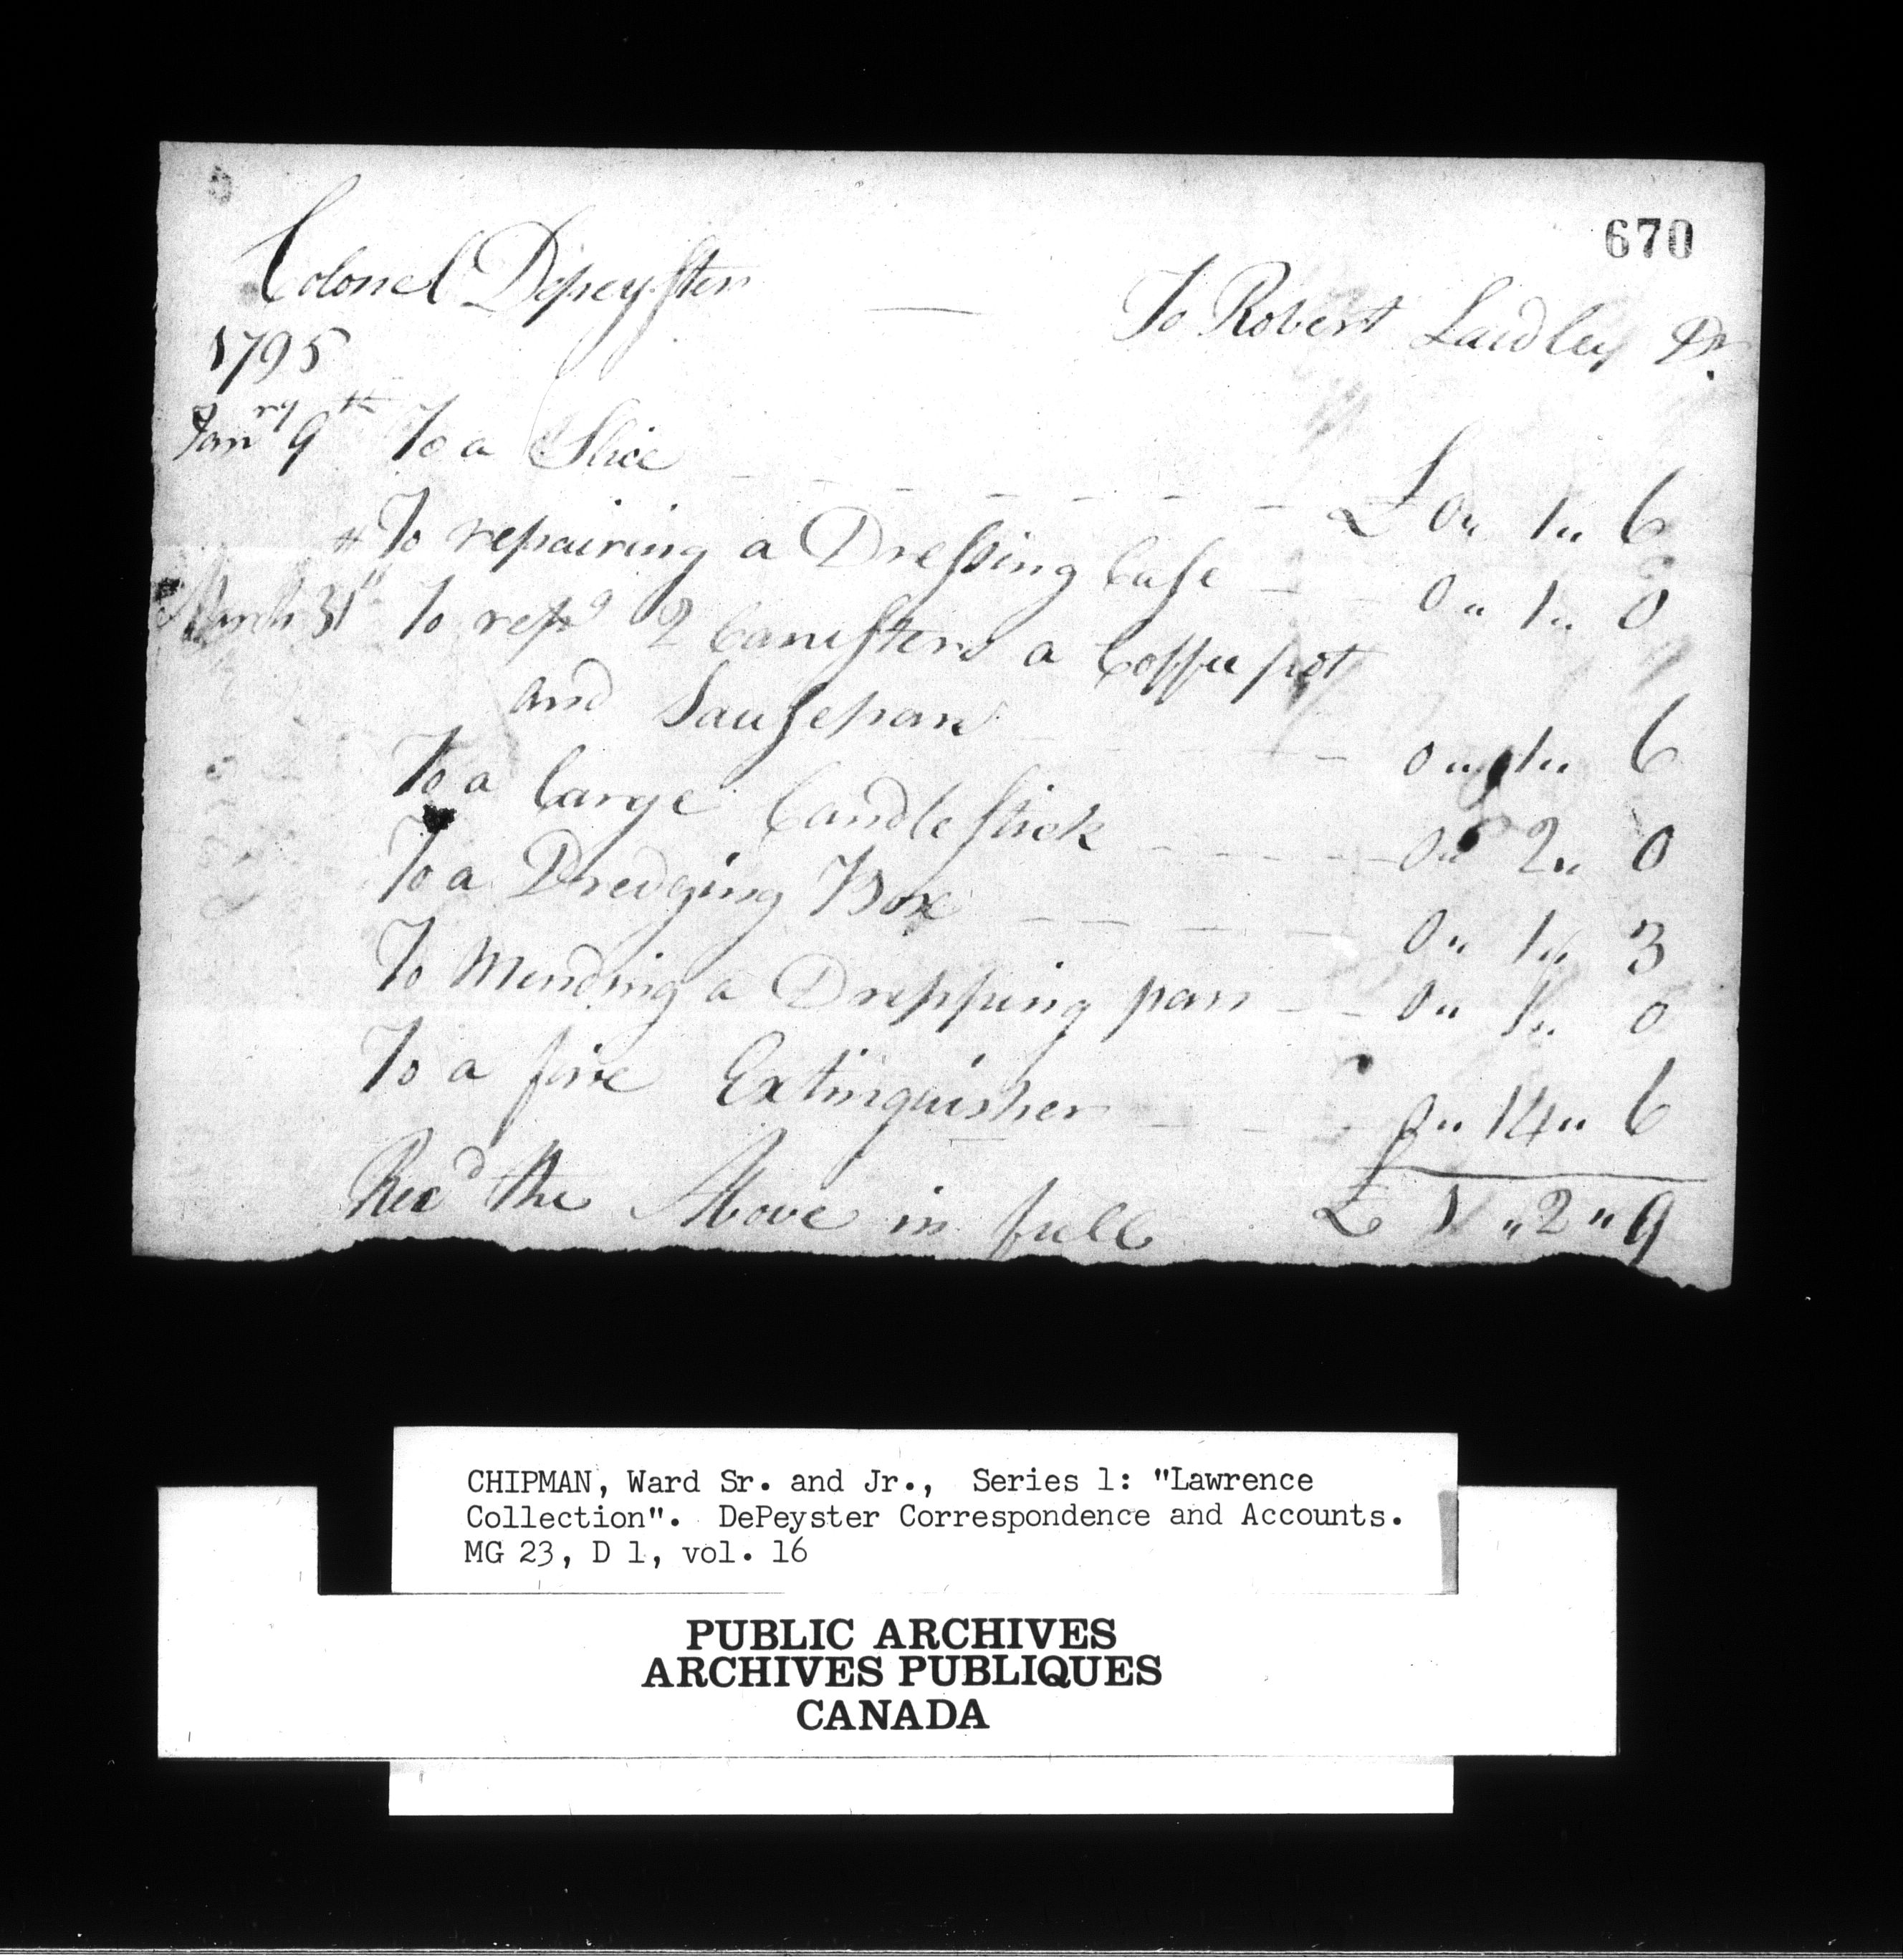 670
Colonel Depeyster — To Robert Laidley Dr.
1795
Janry 9th To a Slice - - - - - - - £ 0 " 1 " 6
" To repairing a Dressing Case - - 0 " 1 " 0
March 31st To repg 2 Canisters a Coffee pot
and Sausepan - - - - - 0 " 1 " 6
To a large Candlestick - - - - - 0 " 2 " 0
To a Dredging Box - - - - - 0 " 1 " 3
To Mending a Dripping pan - - 0 " 1 " 0
To a fire Extinguisher - - - 0 " 14 " 6
Recd the Above in full £ 1 " 2 " 9
CHIPMAN, Ward Sr. and Jr., Series 1: "Lawrence
Collection". DePeyster Correspondence and Accounts.
MG 23, D 1, vol. 16
PUBLIC ARCHIVES
ARCHIVES PUBLIQUES
CANADA